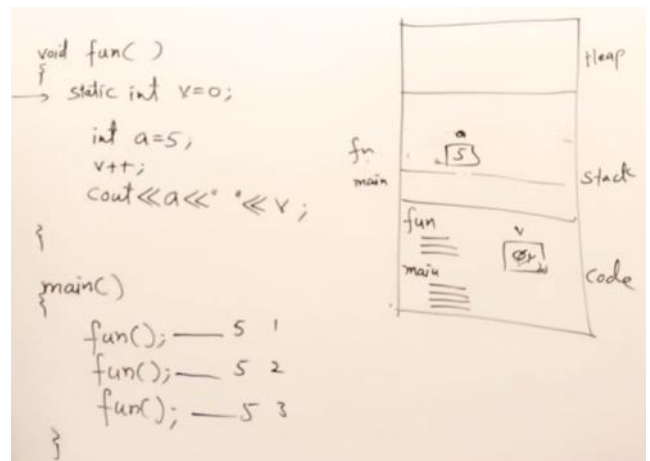 void fun( )
{
→ static int v=0;
int a=5;
v++;
cout<<a<<" "<<v;
}
main()
{
fun(); — 5 1
fun(); — 5 2
fun(); — 5 3
}
Heap
a
5
fn
main
Stack
fun
v
main
Code